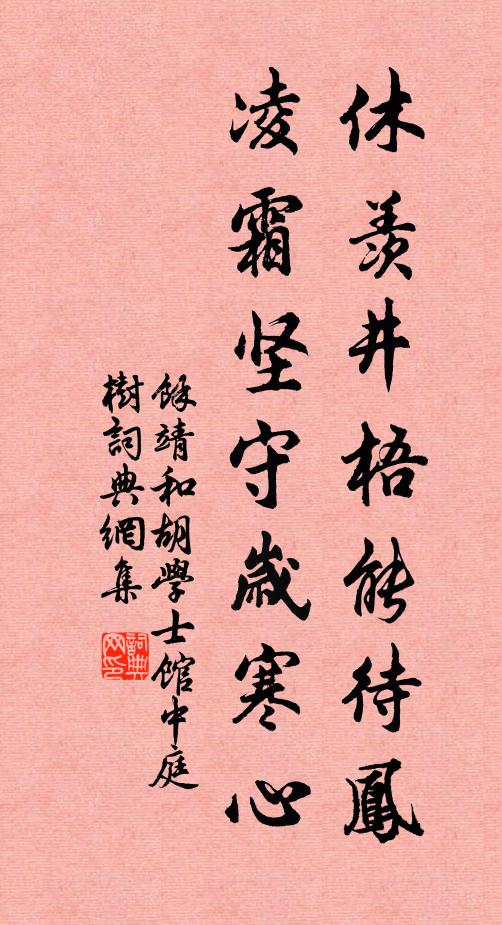 休羨井梧能待鳳
凌霜坚守歲寒心
餘靖和胡學士館中庭
樹詞典網集
詞典
网印